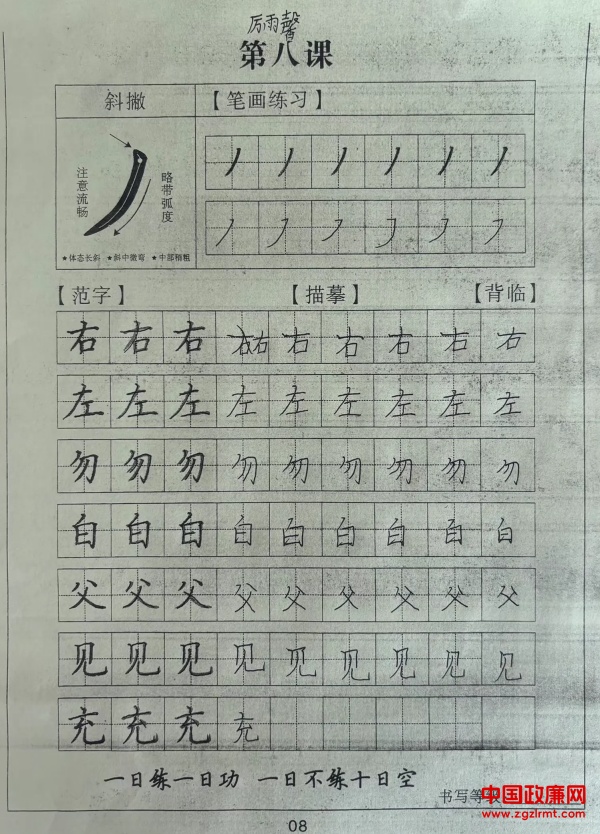 厉雨馨
第八课
斜撇 【笔画练习】
注意流畅 略带弧度
★体态长斜 ★斜中微弯 ★中部稍粗
丿丿丿丿丿丿
丿丿丿丿丿丿
【范字】 【描摹】 【背临】
右右右右右右右右右右
左左左左左左左左左
勿勿勿勿勿勿勿勿勿
白白白白白白白白白
父父父父父父父父父
见见见见见见见见见
充充充充
一日练一日功 一日不练十日空
书写等级
中国政廉网
www.zgzlrmt.com
08